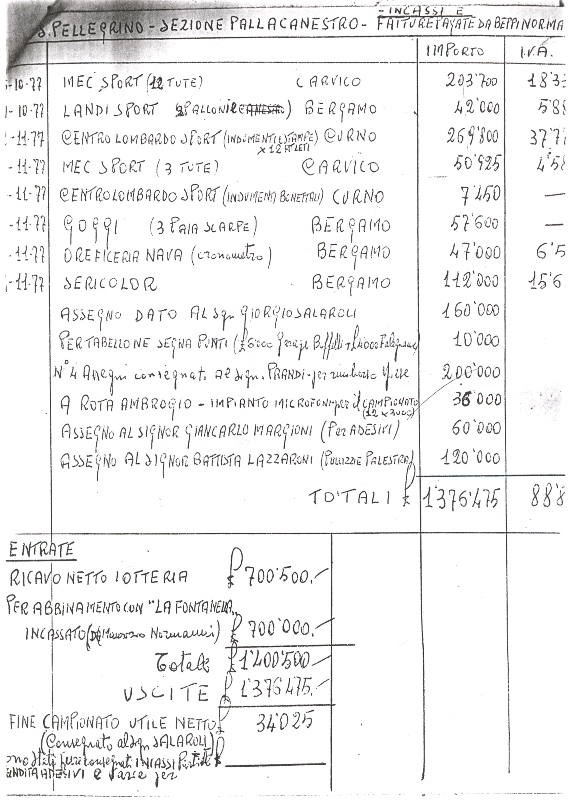 S. PELLEGRINO - SEZIONE PALLACANESTRO - INCASSI E FATTURE PAGATE DA BEPPI NORMA
IMPORTO I.V.A.
-10-77 MEC SPORT (12 TUTE) CARVICO 203'700 18'3
-10-77 LANDI SPORT BERGAMO 42'000 5'88
-11-77 CENTRO LOMBARDO SPORT (INDUMENTI E STAMPE x 12 ATLETI) CURNO 269'800 37'7
-11-77 MEC SPORT (3 TUTE) CARVICO 50'925 4'58
-11-77 CENTRO LOMBARDO SPORT (INDUMENTI BONETTALI) CURNO 7'450 —
-11-77 GOGGI (3 PAIA SCARPE) BERGAMO 57'600 —
-11-77 OREFICERIA NAVA (cronometro) BERGAMO 47'000 6'5
-11-77 SERICOLOR BERGAMO 112'000 15'6
ASSEGNO DATO AL Sgn. GIORGIO SALAROLI 160'000
PER TABELLONE SEGNA PUNTI 10'000
N° 4 Assegni consegnati al sign. PRANDI per rimborso spese 200'000
A ROTA AMBROGIO - IMPIANTO MICROFONI per il CAMPIONATO (12 x 3000) 36'000
ASSEGNO AL SIGNOR GIANCARLO MARGIONI (Per ADESIVI) 60'000
ASSEGNO AL SIGNOR BATTISTA LAZZARONI (PULIZIE PALESTRA) 120'000
TOTALI £ 1'376'475 88'8
ENTRATE
RICAVO NETTO LOTTERIA £ 700'500.-
PER ABBINAMENTO CON "LA FONTANELLA"
INCASSATO £ 700'000.-
Totale £ 1'400'500.-
USCITE £ 1'376'475.-
FINE CAMPIONATO UTILE NETTO £ 34'025
(Consegnato al sgn SALAROLI) £
consegnati INCASSI Partite
ENDITA ADESIVI e